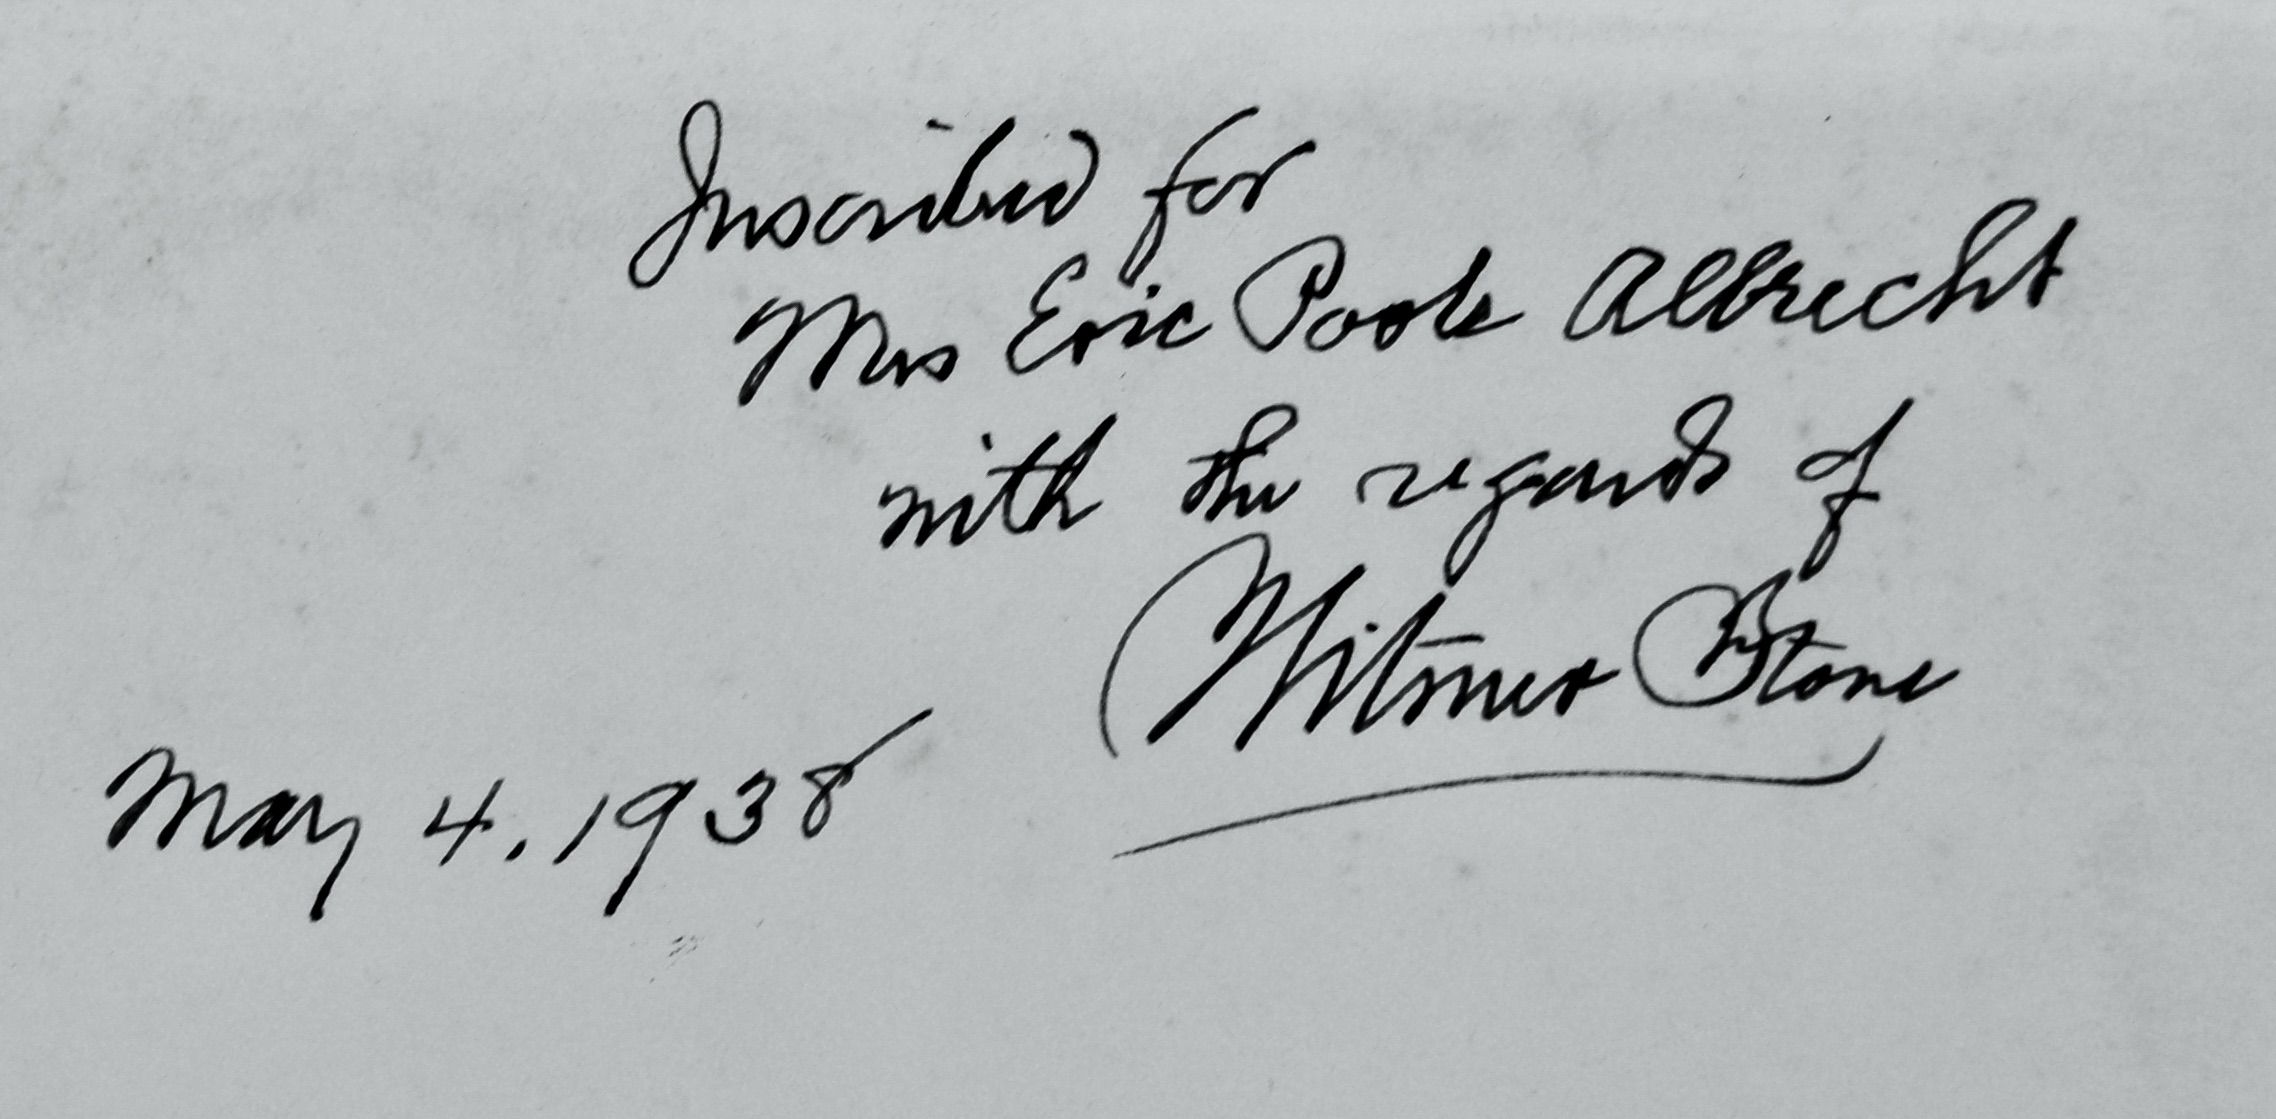 Inscribed for
Mrs Eric Poole Albrecht
with the regards of
Witmer Stone
May 4. 1938